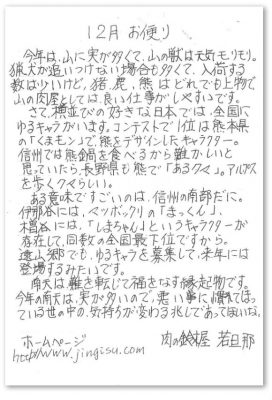 12月 お便り
今年は、山に実が多くて、山の獣は元気モリモリ。
猟犬が追いつけない場合も多くて、入荷する
数は少いけど、猪、鹿、熊はどれでも上物で、
山の肉屋としては、良い仕事がしやすいです。
さて、横並びの好きな日本では、全国に
ゆるキャラがいます。コンテストで1位は熊本県
の「くまモン」で、熊をデザインしたキャラクター。
信州では熊鍋を食べるから難かしいと
思っていたら、長野県も熊で「あるクマ」。アルプス
を歩くクマらしい。
ある意味ですごいのは、信州の南部だに。
伊那谷には、ペツボックリの「まっくん」、
木曽には、「しまちゃん」というキャラクターが
存在して、同数の全国最下位ですから。
遠山郷でも、ゆるキャラを募集して、来年には
登場するみたいです。
南天は難を転じて福をなす縁起物です。
今年の南天は、実が多いので、悪い事に慣れてほっ
ている世の中の、気持ちが変わる兆しであってほしいな。
ホームページ 肉の鈴木屋 若旦那
http://www.jingisu.com/